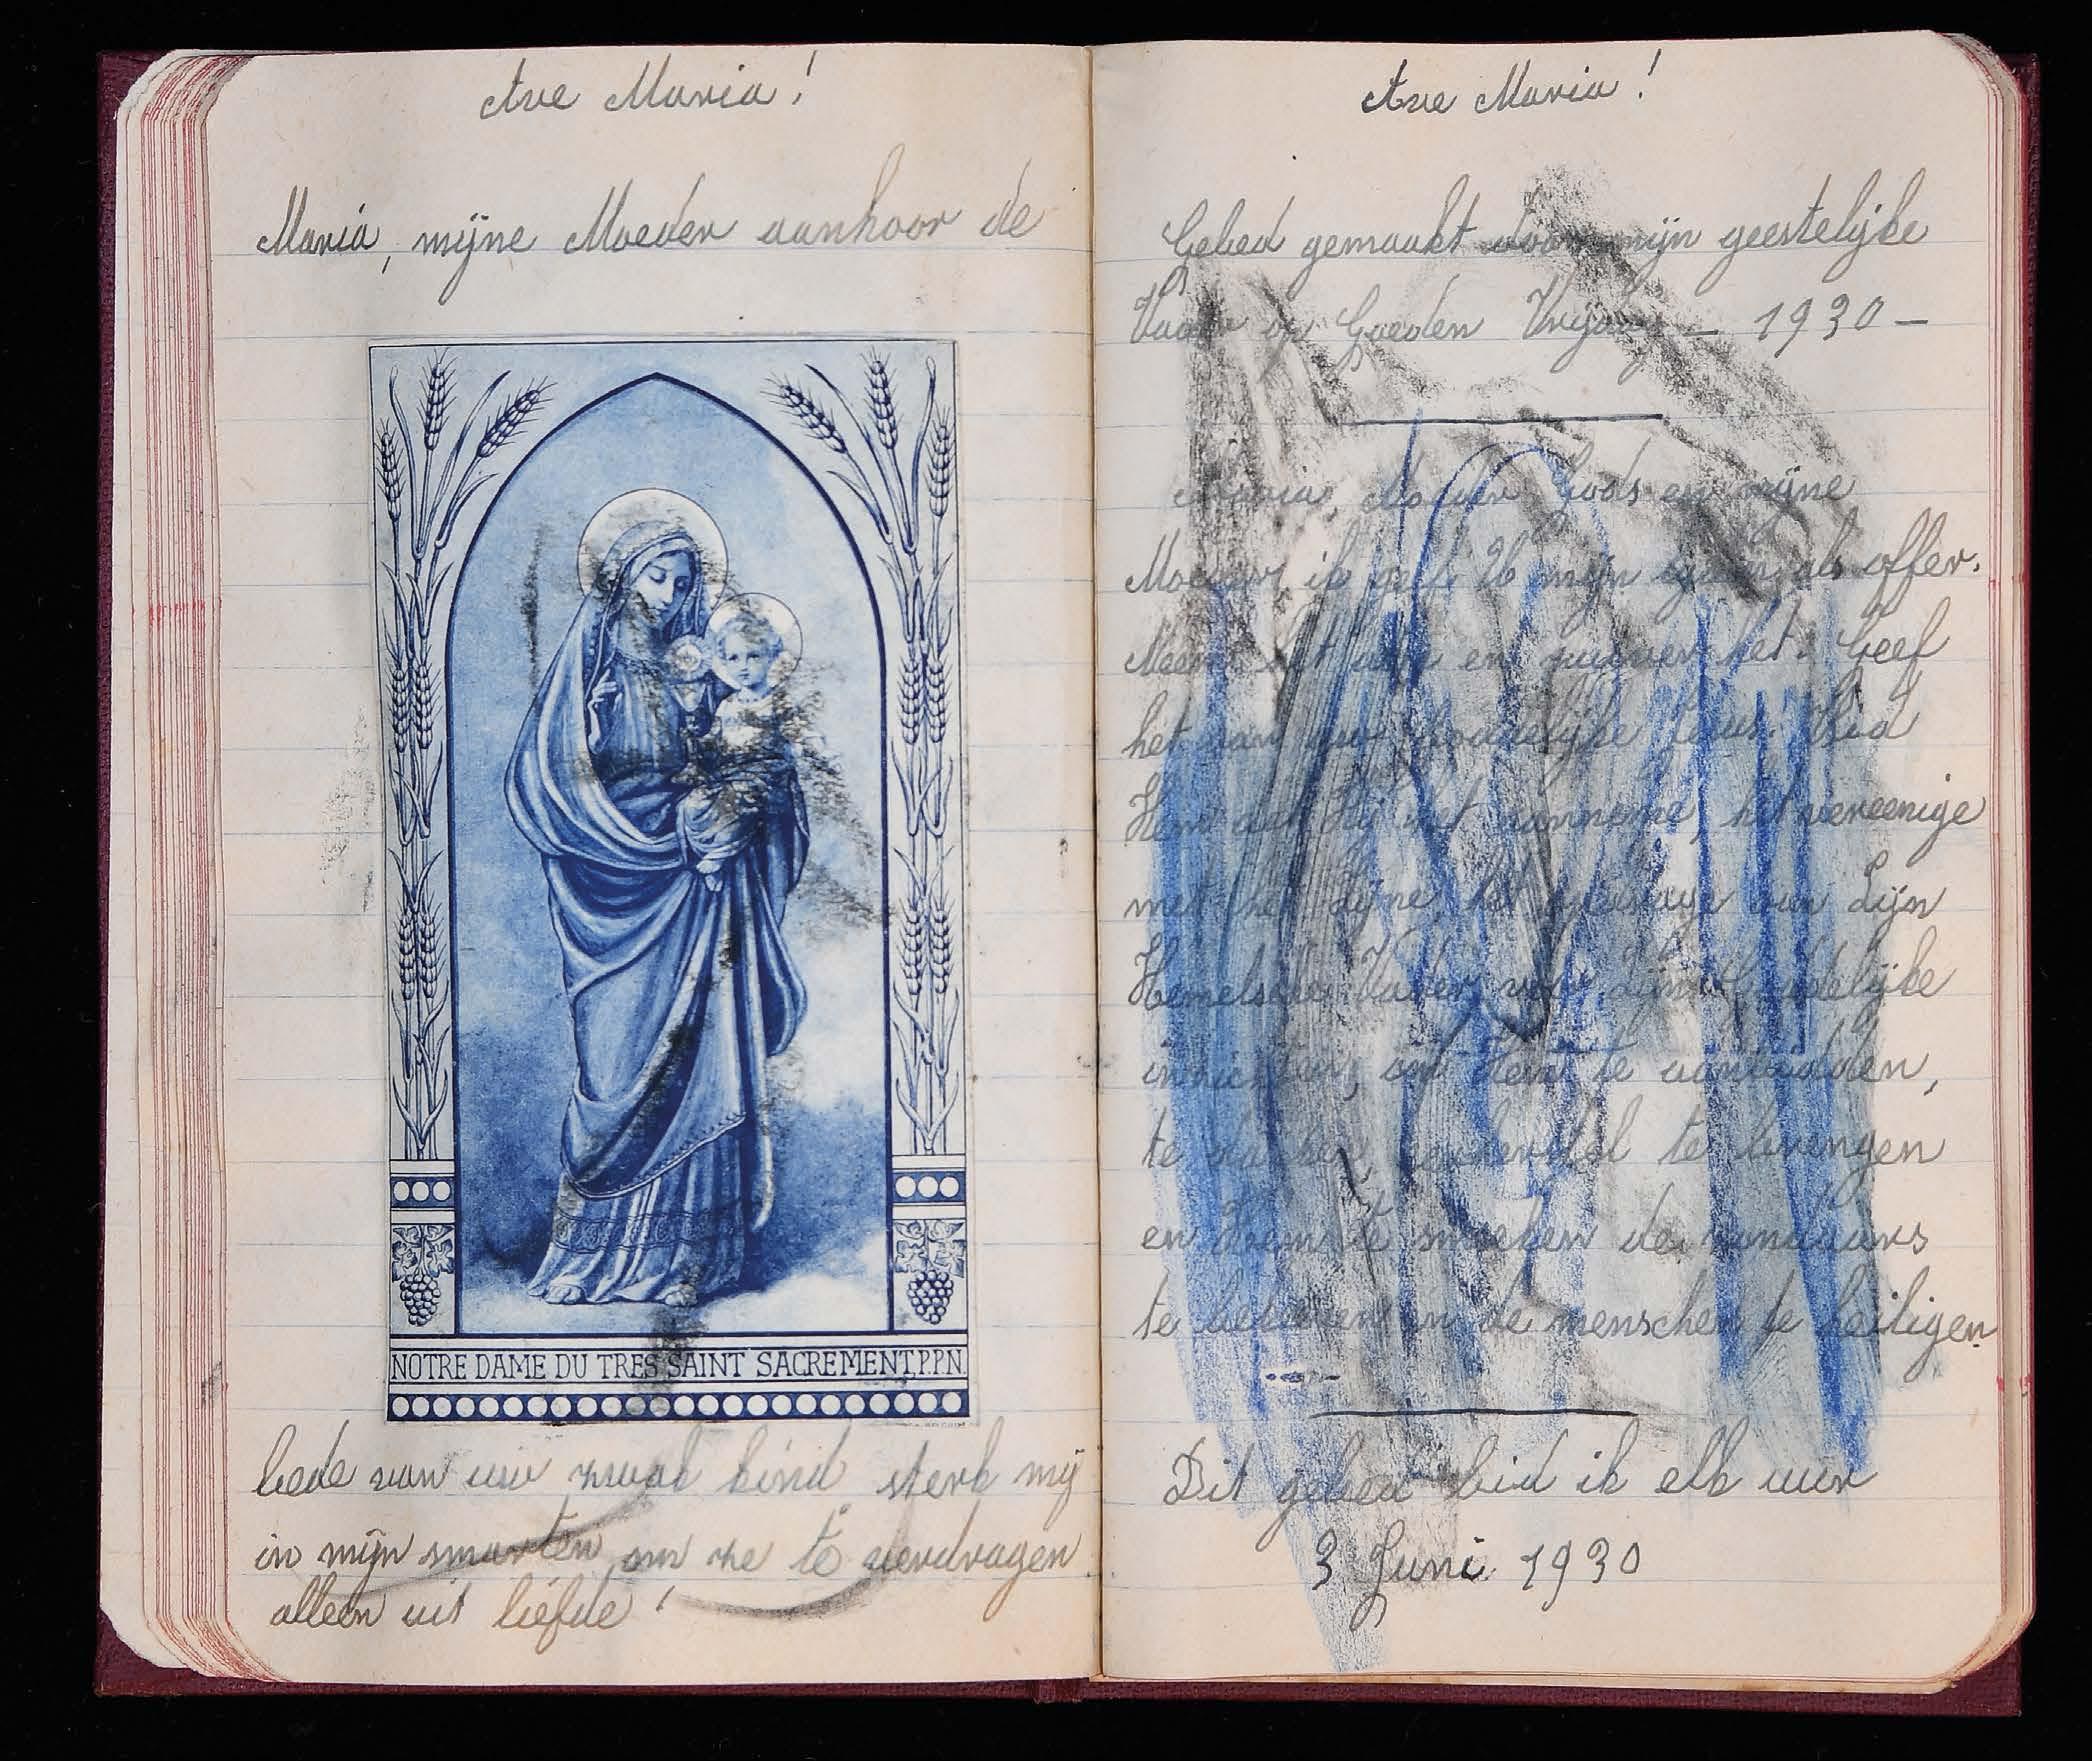 Ave Maria!
Maria, mijne Moeder aanhoor de
NOTRE DAME DU TRES SAINT SACREMENT, P.P.N.
bede van uw zwak kind sterk mij
in mijn smarten om ze te verdragen
alleen uit liefde!
Ave Maria!
Gebed gemaakt door mijn geestelijke
Vader op Goeden Vrijdag – 1930 –
Maria, Moeder Gods en mijne
Moeder, ik geef U mijn lijden als offer.
Neem het aan en zuiver het. Geef
het aan uw Goddelijke Jesus. Bid
Hem dat Hij het aanneme, het vereenige
met het Zijne, het opdrage aan Zijn
Hemelschen Vader voor Zijn Goddelijke
inzichten, om Hem te aanbidden,
te danken, eerherstel te brengen
en Hem te smeeken de zondaars
te bekeeren en de menschen te heiligen
Dit gebed bid ik elk uur
3 Juni 1930